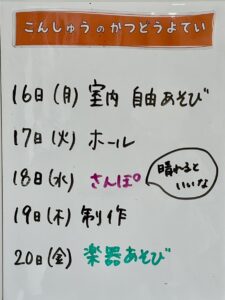 こんしゅうのかつどうよてい
16日(月) 室内 自由あそび
17日(火) ホール
18日(水) さんぽ
晴れると
いいな
19日(木) 制作
20日(金) 楽器あそび